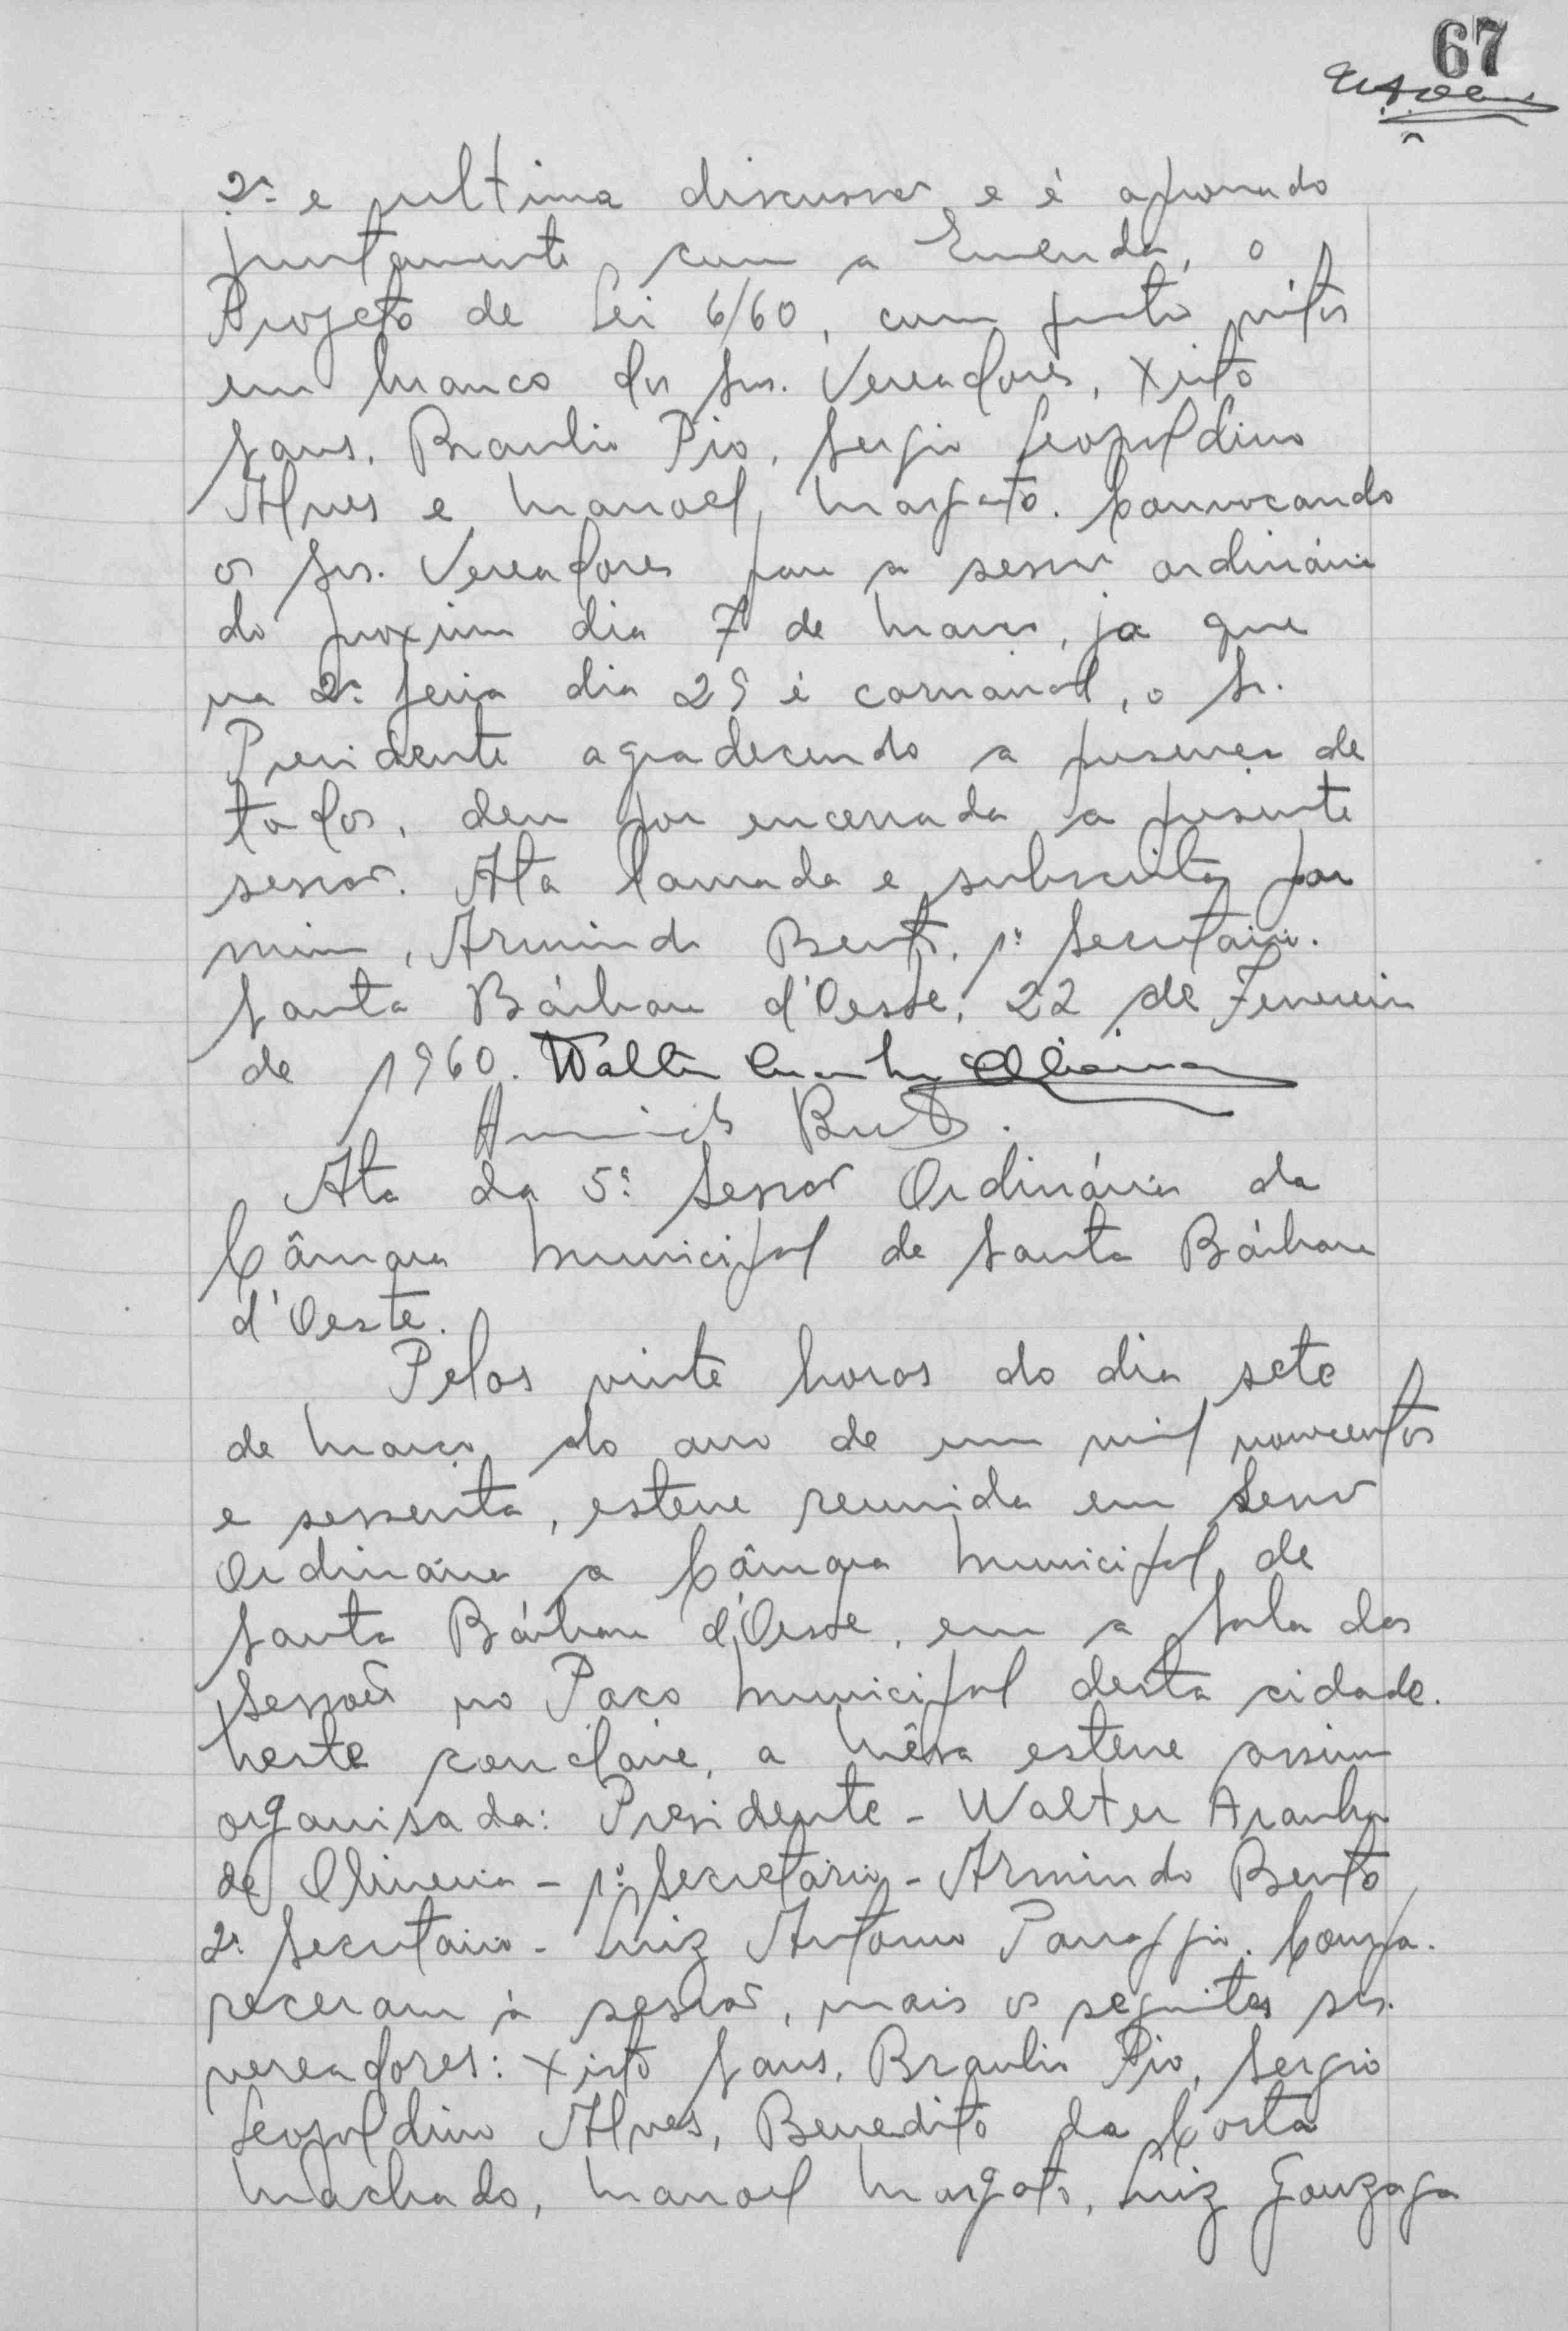 67
2ª e ultima discussão e é aprovado
juntamente com a Emenda, o
Projeto de Lei 6/60, com quatro vótos
em branco dos Srs. Vereadores, Xisto
Sans, Braulio Pio, Sergio Leopoldino
Alves e Manoel Margato. Convocando
os Srs. Vereadores para a sessão ordinária
do proximo dia 7 de Março, ja que
na 2ª feira dia 29 é carnaval, o Sr.
Presidente agradecendo a presença de
todos, deu por encerrada a presente
sessão. Ata lavrada e subscrita por
mim, Armindo Bento, 1º Secretário.
Santa Bárbara d'Oeste, 22 de Fevereiro
de 1960. Walter Aranha Oliveira
Armindo Bento.
Ata da 5ª Sessão Ordinária da
Câmara Municipal de Santa Bárbara
d'Oeste.
Pelas vinte horas do dia sete
de Março do ano de um mil novecentos
e sessenta, esteve reunida em Sessão
Ordinária a Câmara Municipal de
Santa Bárbara d'Oeste, em a Sala das
Sessões no Paço Municipal desta cidade.
Neste conclave, a Mêsa esteve assim
organisada: Presidente - Walter Aranha
de Oliveira - 1º Secretário - Armindo Bento
2º Secretário - Luiz Antonio Panaggio. Compa-
receram à sessão, mais os seguintes srs.
vereadores: Xisto Sans, Braulio Pio, Sergio
Leopoldino Alves, Benedito da Costa
Machado, Manoel Margato, Luiz Gonzaga